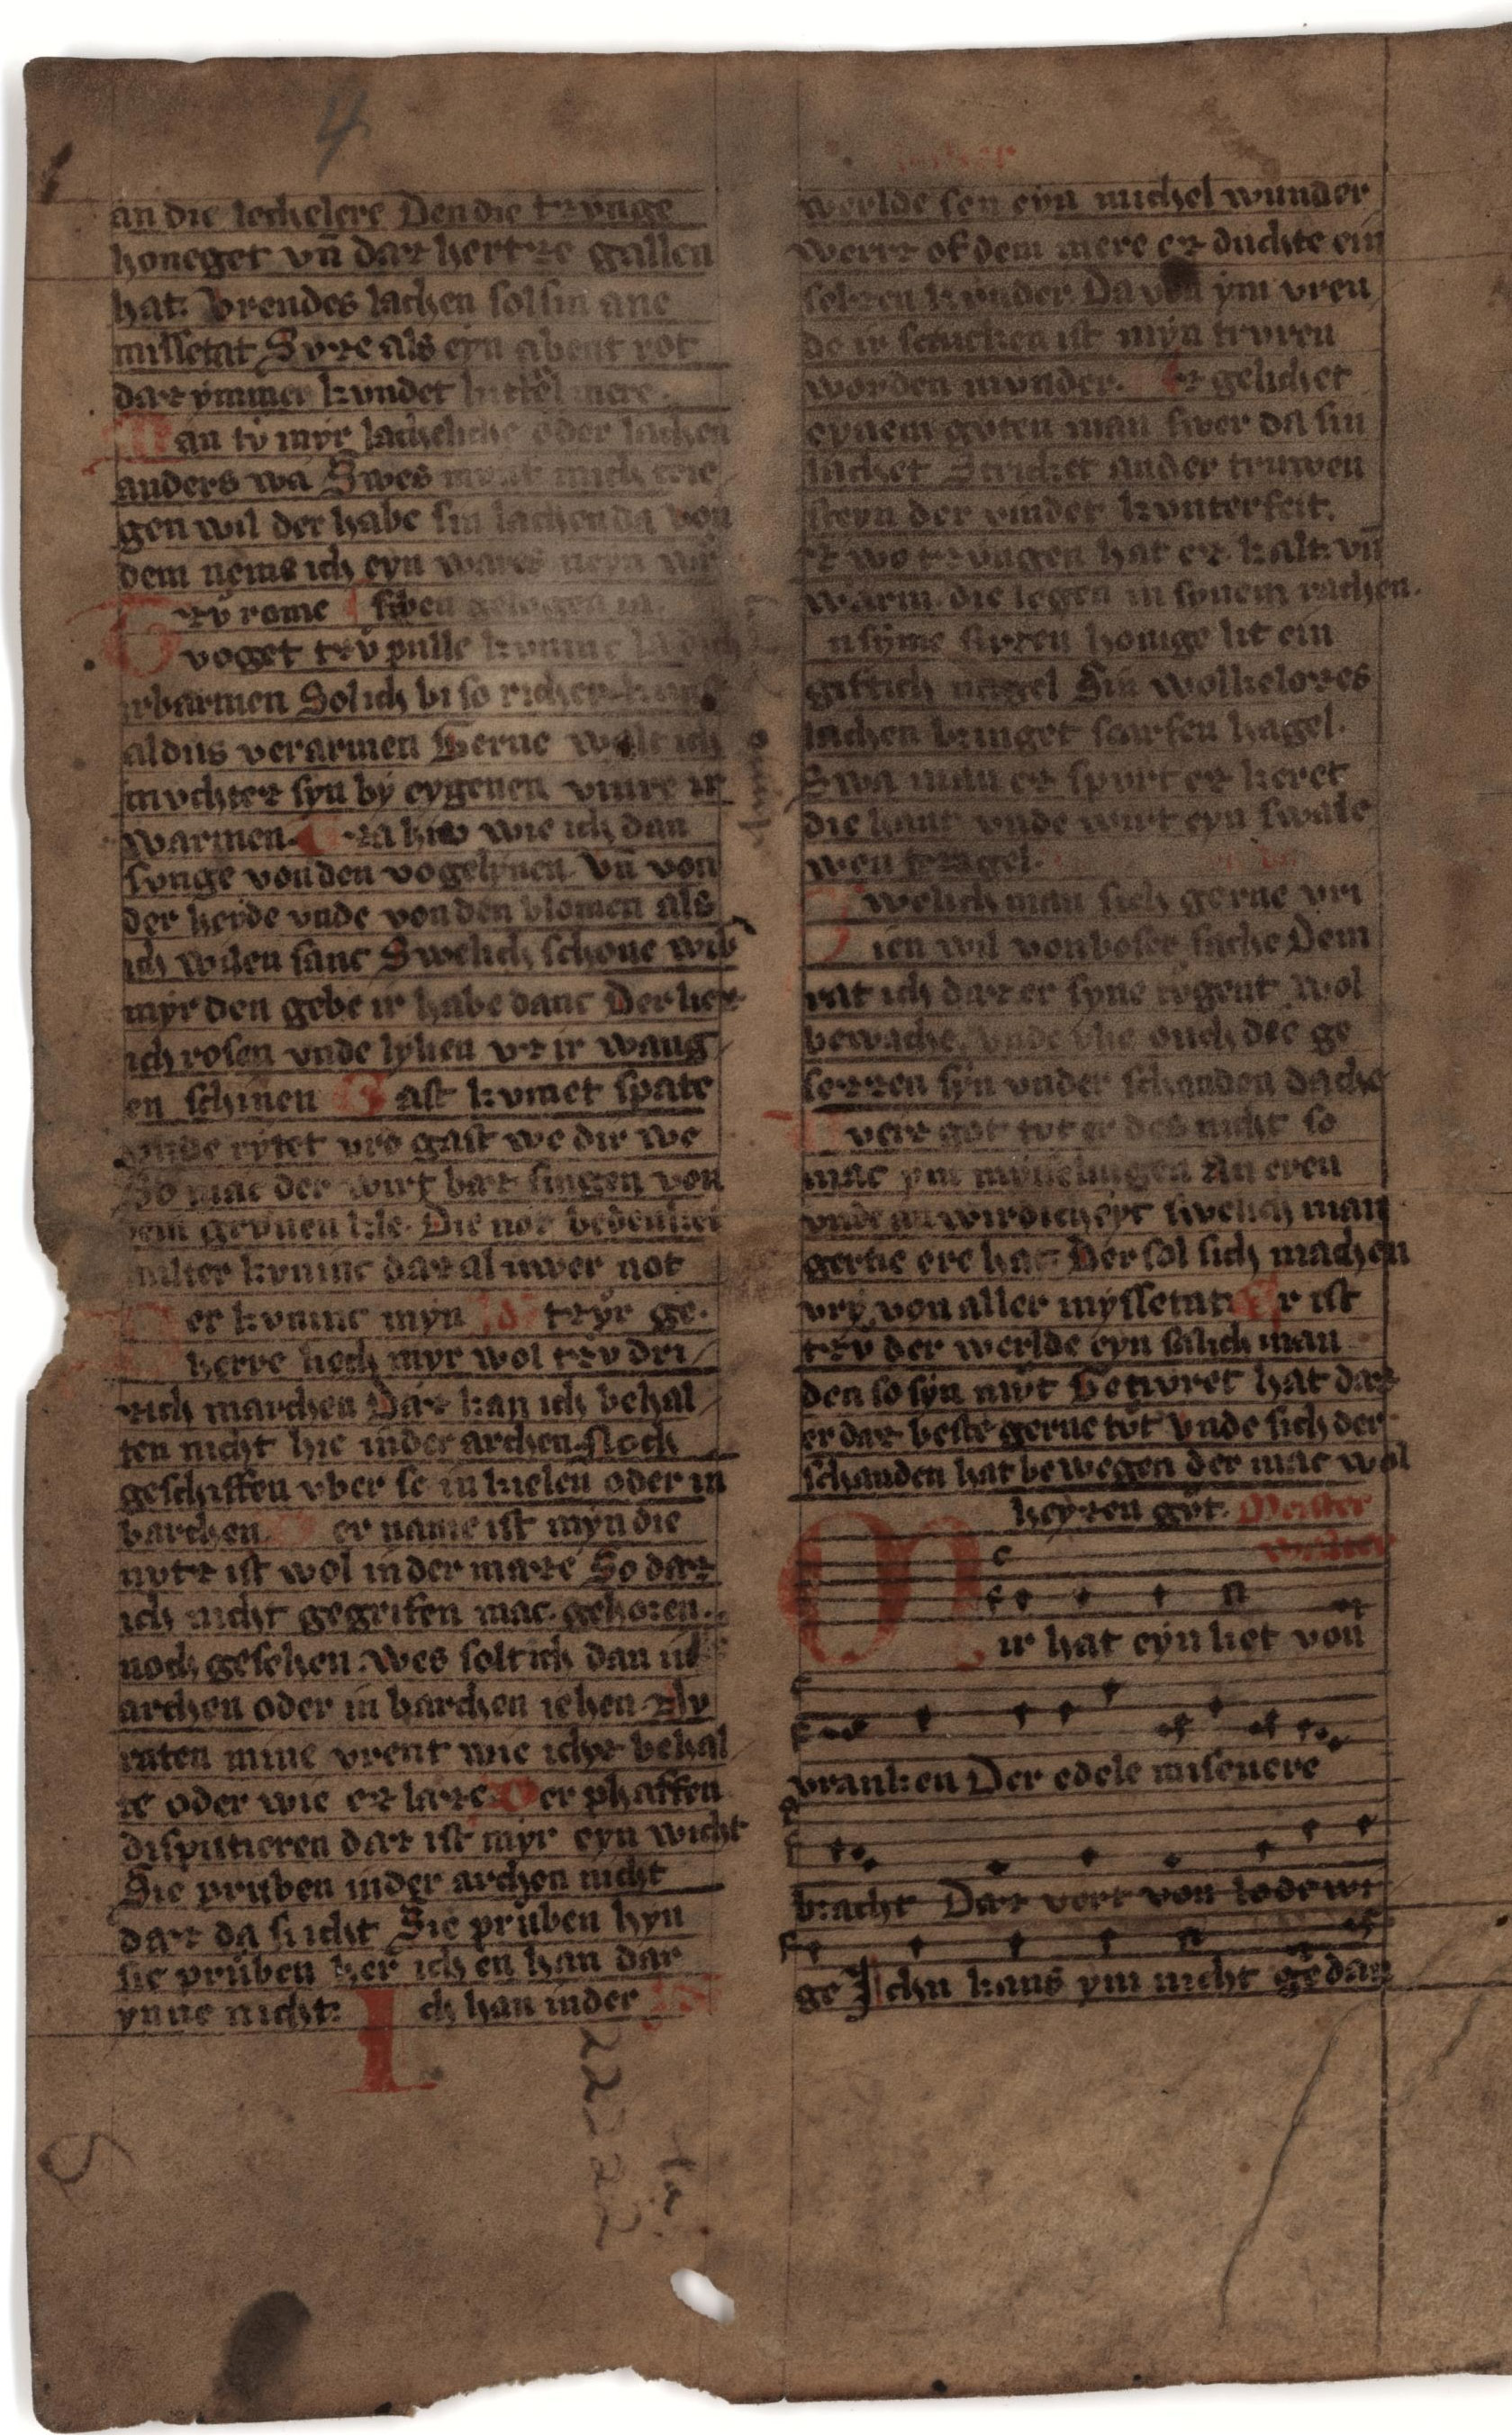 4
an die lechelere Den die tzvnge
honeget vn̄ daz hertze gallen
hat. Vrendes lachen sol sin ane
missetat Svze als eyn abent rot
daz ymmer kvndet luttel mere.
an tv myr lacheliche oder lachen
anders wa Swes mvnt mich trie
gen wil der habe sin lachen da von
dem neme ich eyn wares neyn vvr
tzv rome siben gelogen ia.
voget tzv pulle kvninc la dich
irbarmen Sol ich bi so richer kunst
aldus verarmen Gerne wolt ich
mvchtez syn by eygenen viure ir
warmen. za hiv wie ich dan
svnge von den vogelynen. Vn̄ von
der heyde vnde von den blomen als
ich wilen sanc Swelich schone wib
myr den gebe ir habe danc Der liez
ich rosen vnde lylien vz ir wang
en schinen Gast kvmet spate
vnde rytet vro gast we dir we
So mac der wirt baz singen von
dem grvnen kle. Die not bedenket
milter kvninc daz al uwer not
er kvninc myn d tzvr ge.
herre liech myr wol tzv dri
zich marchen Daz kan ich behal
ten nicht hie in der archen Noch
geschiffen vber se in kielen oder in
barchen er name ist myn die
nvtz ist wol in der maze So daz
ich nicht gegrifen mac. gehoren.
noch gesehen. wes solt ich dan in
archen oder in barchen iehen Nv
raten mine vrent wie ichz behal
te oder wie ez laze Der phaffen
disputieren daz ist myr eyn wicht
Sie pruben in der archen nicht
daz da si icht Sie pruben hyn
sie pruben her ich en han dar
ynne nicht. Ich han in der
werlde sen eyn michel wunder
werez of dem mere ez duchte ein
seltzen kvnder Da von ym vreu
de ir scricken ist myn trvren
worden mvnder. Ez gelichet
eynem gvten man swer da sin
lachet Stricket ander truwen
steyn der vindet kvnterfeit.
zwo tzvngen hat ez. kalt vn̄
warm. die legen in synem rachen.
n syme svzen honige lit ein
giftich nagel Sin wolkeloses
lachen bringet scarfen hagel.
Swa man ez spvrt ez keret
die hant vnde wirt eyn swale
wen tzagel.
Swelich man sich gerne vri
ien wil von boser sache Dem
rat ich daz er syne tvgent wol
bewache. vnde vlie ouch die ge
sezzen syn vnder schanden dache
vere got tvt er des nicht so
mac ym myslingen An eren
vnde an wirdicheyt swelich man
gerne ere hat Der sol sich machen
vry von aller myssetat. Er ist
tzv der werlde eyn salich man
den so syn mvt Getivret hat daz
er daz beste gerne tvt vnde sich der
schanden hat bewegen der mac wol
heyzen gvt. Meister
walter
Mir hat eyn liet von
vranken Der edele misenere
bracht Daz vert von lodewi
ge Ichn kans ym nicht gedan